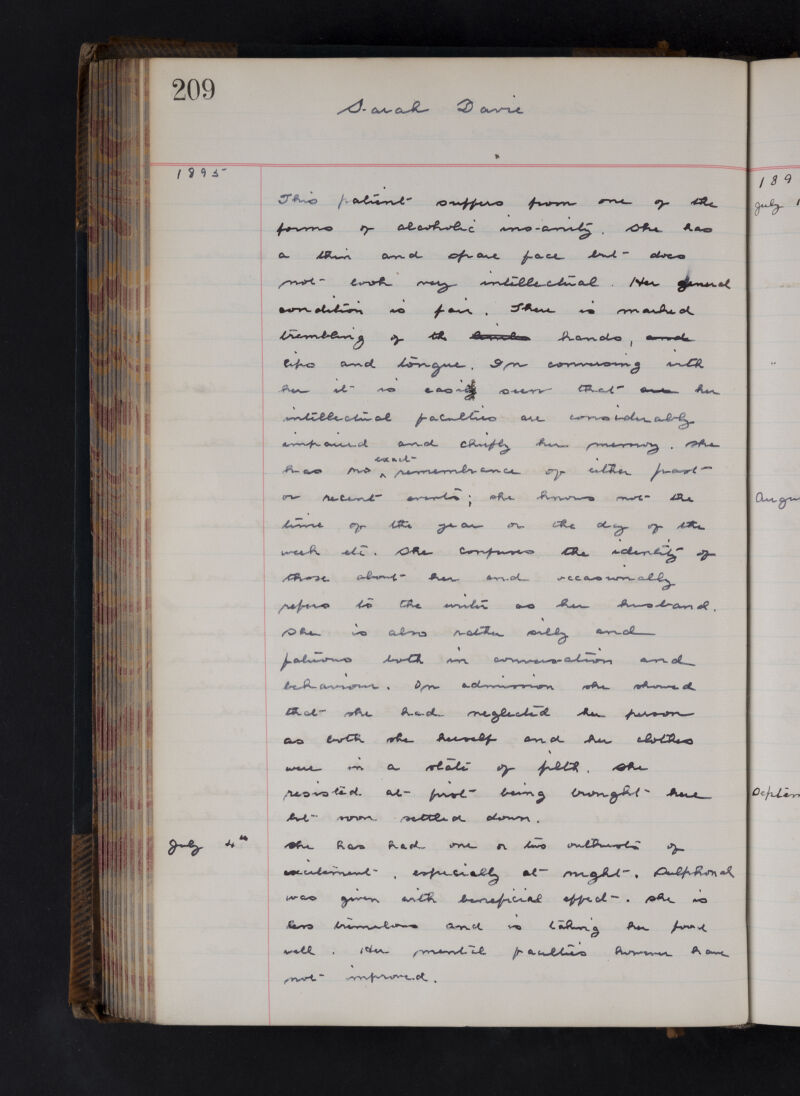 209
Sarah Davie
1895
This patient suffers from one of the
forms of alcoholic insanity. She has
a thin and spare face but does
not look very intellectual. Her general
condition is fair. There is marked
trembling of the limbs hands, and
lips and tongue. In conversing with
her it is easily seen that are her
intellectual faculties are considerably
impaired and chiefly her memory. She
exact
has no ^ remembrance of either past
or recent events; she knows not the
time of the year or the day of the
week etc. She confuses the identity of
those about her and occasionally
refers to the writer as her husband.
She is also rather silly and
fatuous both in conversation and
behaviour. On admission she showed
that she had neglected her person
as both she herself and her clothes
were in a state of filth. She
resisted at first being brought here
but soon settled down.
July 4th
She has had one or two outbursts of
excitement, especially at night. Sulphonal
was given with beneficial effect. She is
less tremulous and is taking her food
well. Her mental faculties however have
not improved.
189
July 1
Augu
Septem